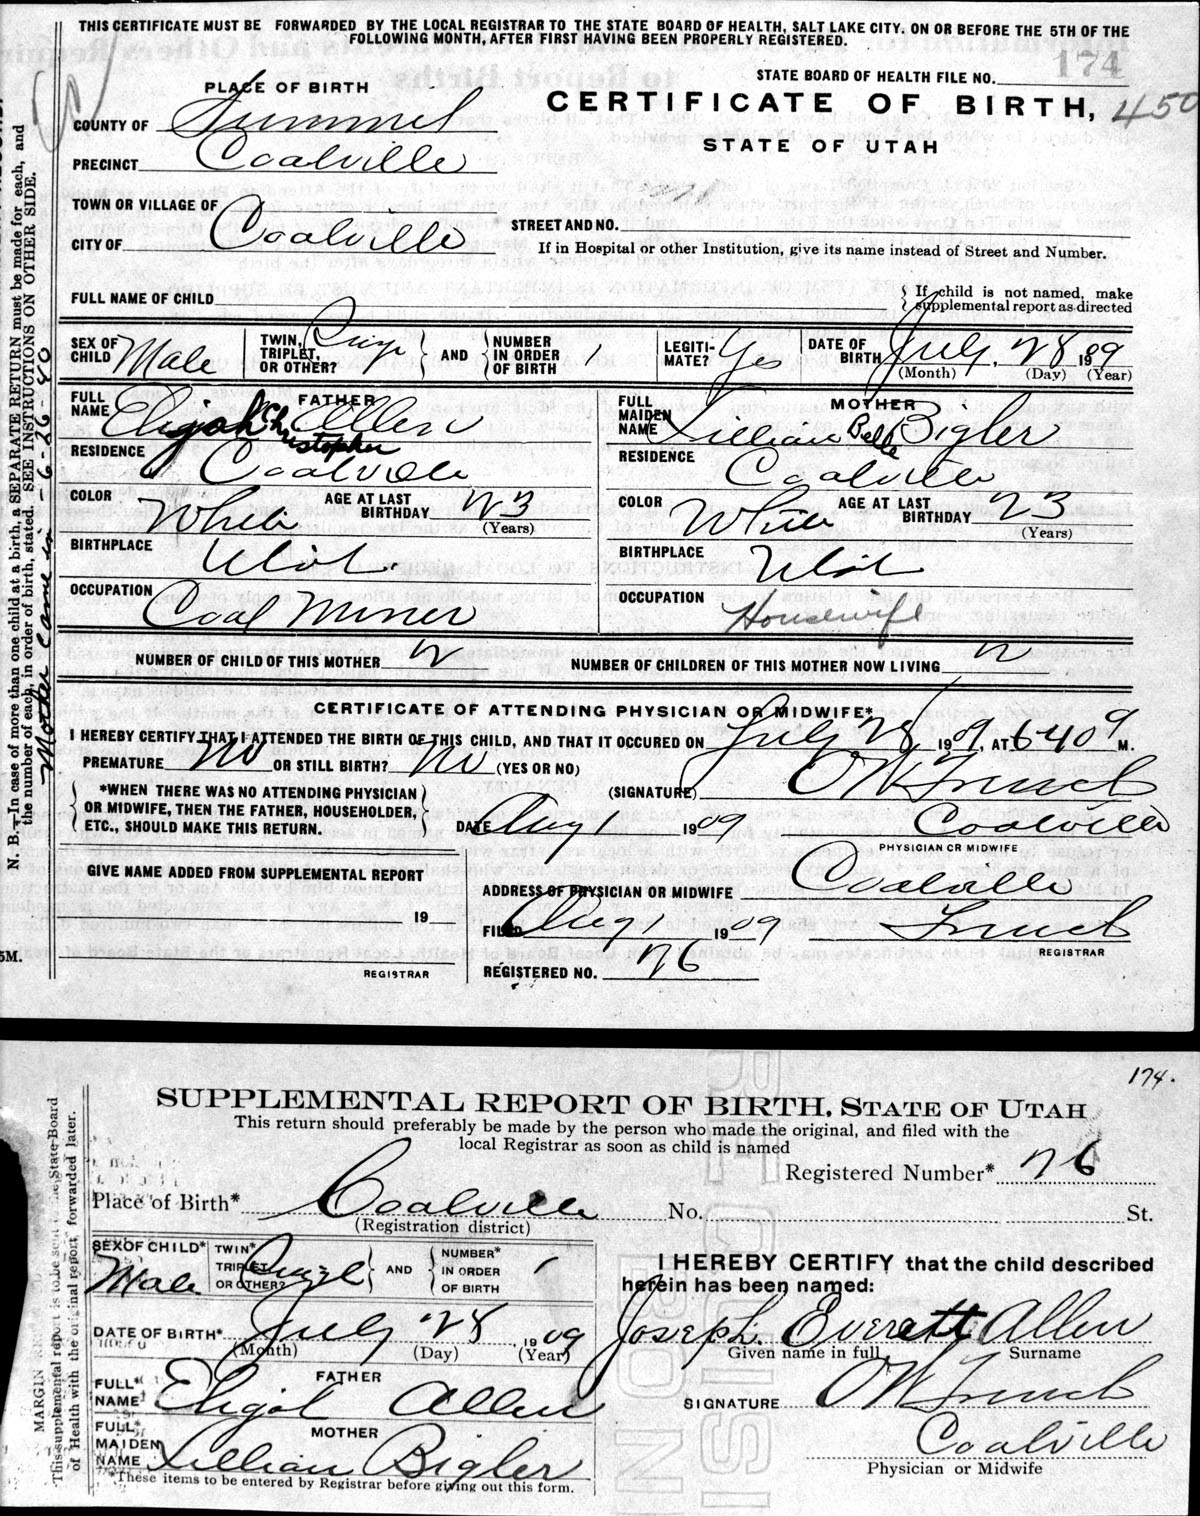 THIS CERTIFICATE MUST BE FORWARDED BY THE LOCAL REGISTRAR TO THE STATE BOARD OF HEALTH, SALT LAKE CITY. ON OR BEFORE THE 5TH OF THE
FOLLOWING MONTH, AFTER FIRST HAVING BEEN PROPERLY REGISTERED.
STATE BOARD OF HEALTH FILE NO. 174
PLACE OF BIRTH
CERTIFICATE OF BIRTH, 450
COUNTY OF Summit
STATE OF UTAH
PRECINCT Coalville
TOWN OR VILLAGE OF
CITY OF Coalville
STREET AND NO.
If in Hospital or other Institution, give its name instead of Street and Number.
FULL NAME OF CHILD
If child is not named, make
supplemental report as directed
SEX OF CHILD Male
TWIN, TRIPLET, OR OTHER?
AND
NUMBER IN ORDER OF BIRTH 1
LEGITIMATE? Yes
DATE OF BIRTH July 28 1909
(Month) (Day) (Year)
FATHER
FULL NAME Elijah Christopher Allen
RESIDENCE Coalville
COLOR White
AGE AT LAST BIRTHDAY 23
(Years)
BIRTHPLACE Utah
OCCUPATION Coal Miner
MOTHER
FULL MAIDEN NAME Lillian Belle Bigler
RESIDENCE Coalville
COLOR White
AGE AT LAST BIRTHDAY 23
(Years)
BIRTHPLACE Utah
OCCUPATION Housewife
NUMBER OF CHILD OF THIS MOTHER 2
NUMBER OF CHILDREN OF THIS MOTHER NOW LIVING 2
CERTIFICATE OF ATTENDING PHYSICIAN OR MIDWIFE*
I HEREBY CERTIFY THAT I ATTENDED THE BIRTH OF THIS CHILD, AND THAT IT OCCURED ON July 28 1909, AT 640 M.
PREMATURE No OR STILL BIRTH? No (YES OR NO)
*WHEN THERE WAS NO ATTENDING PHYSICIAN
OR MIDWIFE, THEN THE FATHER, HOUSEHOLDER,
ETC., SHOULD MAKE THIS RETURN.
(SIGNATURE)
DATE Aug 1 1909 Coalville
PHYSICIAN OR MIDWIFE
GIVE NAME ADDED FROM SUPPLEMENTAL REPORT
19
REGISTRAR
ADDRESS OF PHYSICIAN OR MIDWIFE Coalville
FILED Aug 1 1909
REGISTRAR
REGISTERED NO. 26
N. B.—In case of more than one child at a birth, a SEPARATE RETURN must be made for each, and
the number of each, in order of birth, stated. SEE INSTRUCTIONS ON OTHER SIDE.
Mother came in - 6-26-40
5M.
174.
SUPPLEMENTAL REPORT OF BIRTH, STATE OF UTAH
This return should preferably be made by the person who made the original, and filed with the
local Registrar as soon as child is named
Registered Number* 26
Place of Birth* Coalville No. St.
(Registration district)
SEX OF CHILD* Male
TWIN* TRIPLET OR OTHER?
AND
NUMBER* IN ORDER OF BIRTH 1
DATE OF BIRTH* July 28 1909
(Month) (Day) (Year)
FATHER
FULL* NAME Elijah Allen
MOTHER
FULL* MAIDEN NAME Lillian Bigler
*These items to be entered by Registrar before giving out this form.
I HEREBY CERTIFY that the child described
herein has been named:
Joseph Everett Allen
Given name in full Surname
SIGNATURE
Coalville
Physician or Midwife
MARGIN
This supplemental report is to be sent State Board
of Health with the original report, forwarded later.